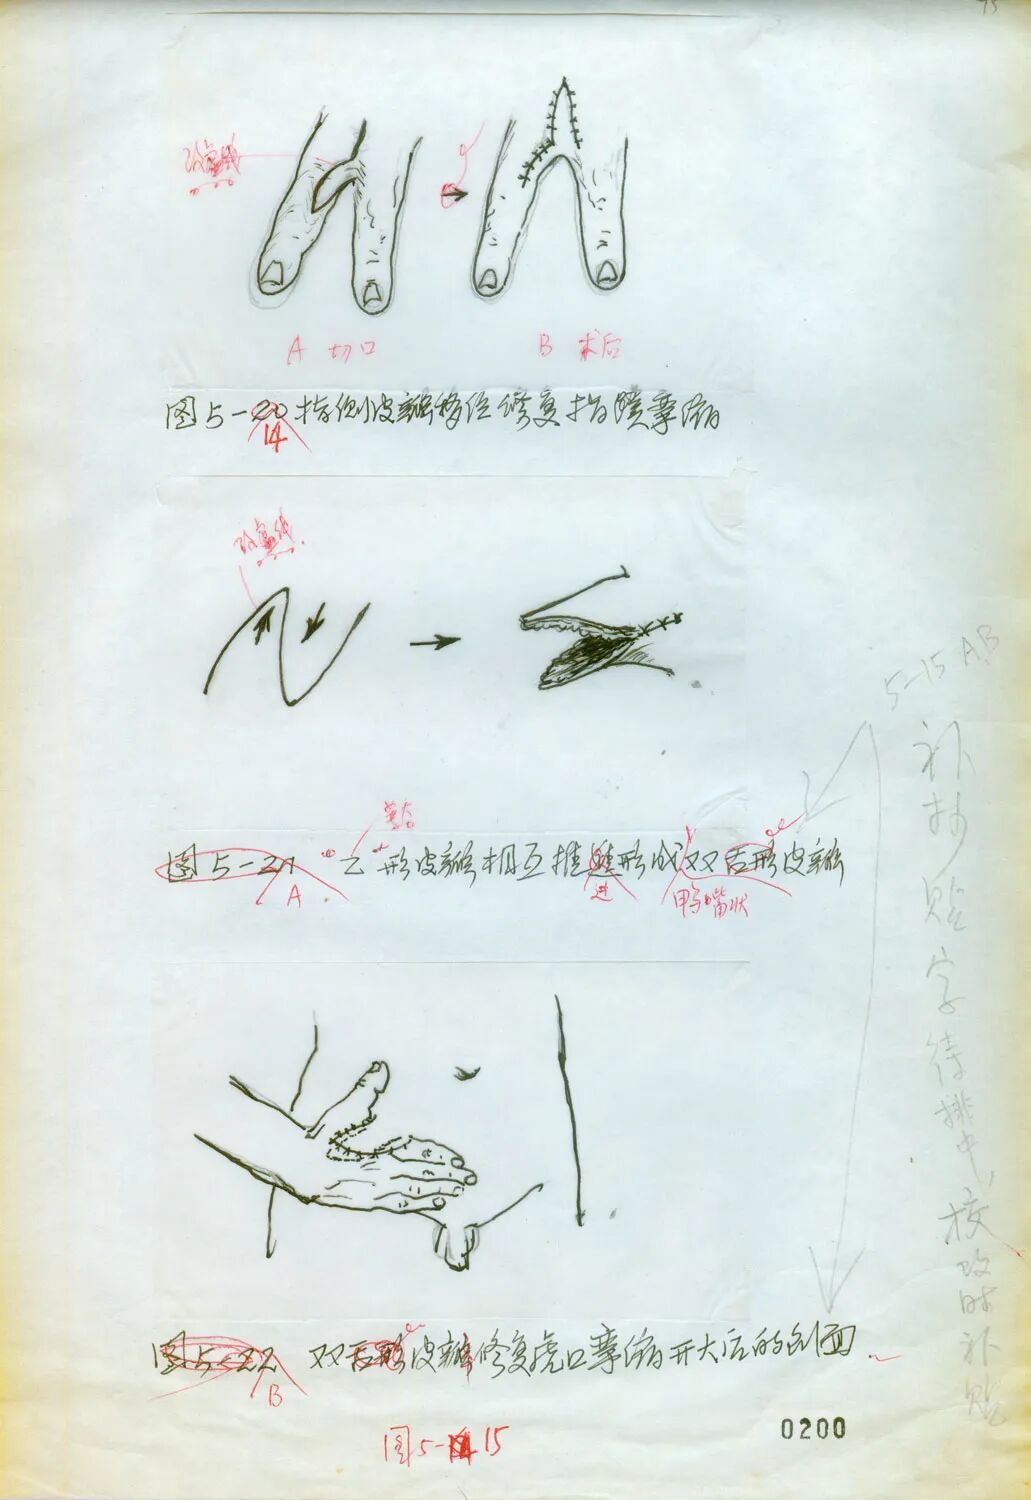 75
改虚线
A 切口
B 术后
图5-20 指侧皮瓣移位修复指蹼挛缩
14
改虚线
5-15 A,B
补抄贴字待排中,校改时补贴
图5-21 Z形皮瓣相互推进形成双舌形皮瓣
A
进
鸭嘴状
图5-22 双舌形皮瓣修复虎口挛缩开大后的创面
B
图5-15
0200